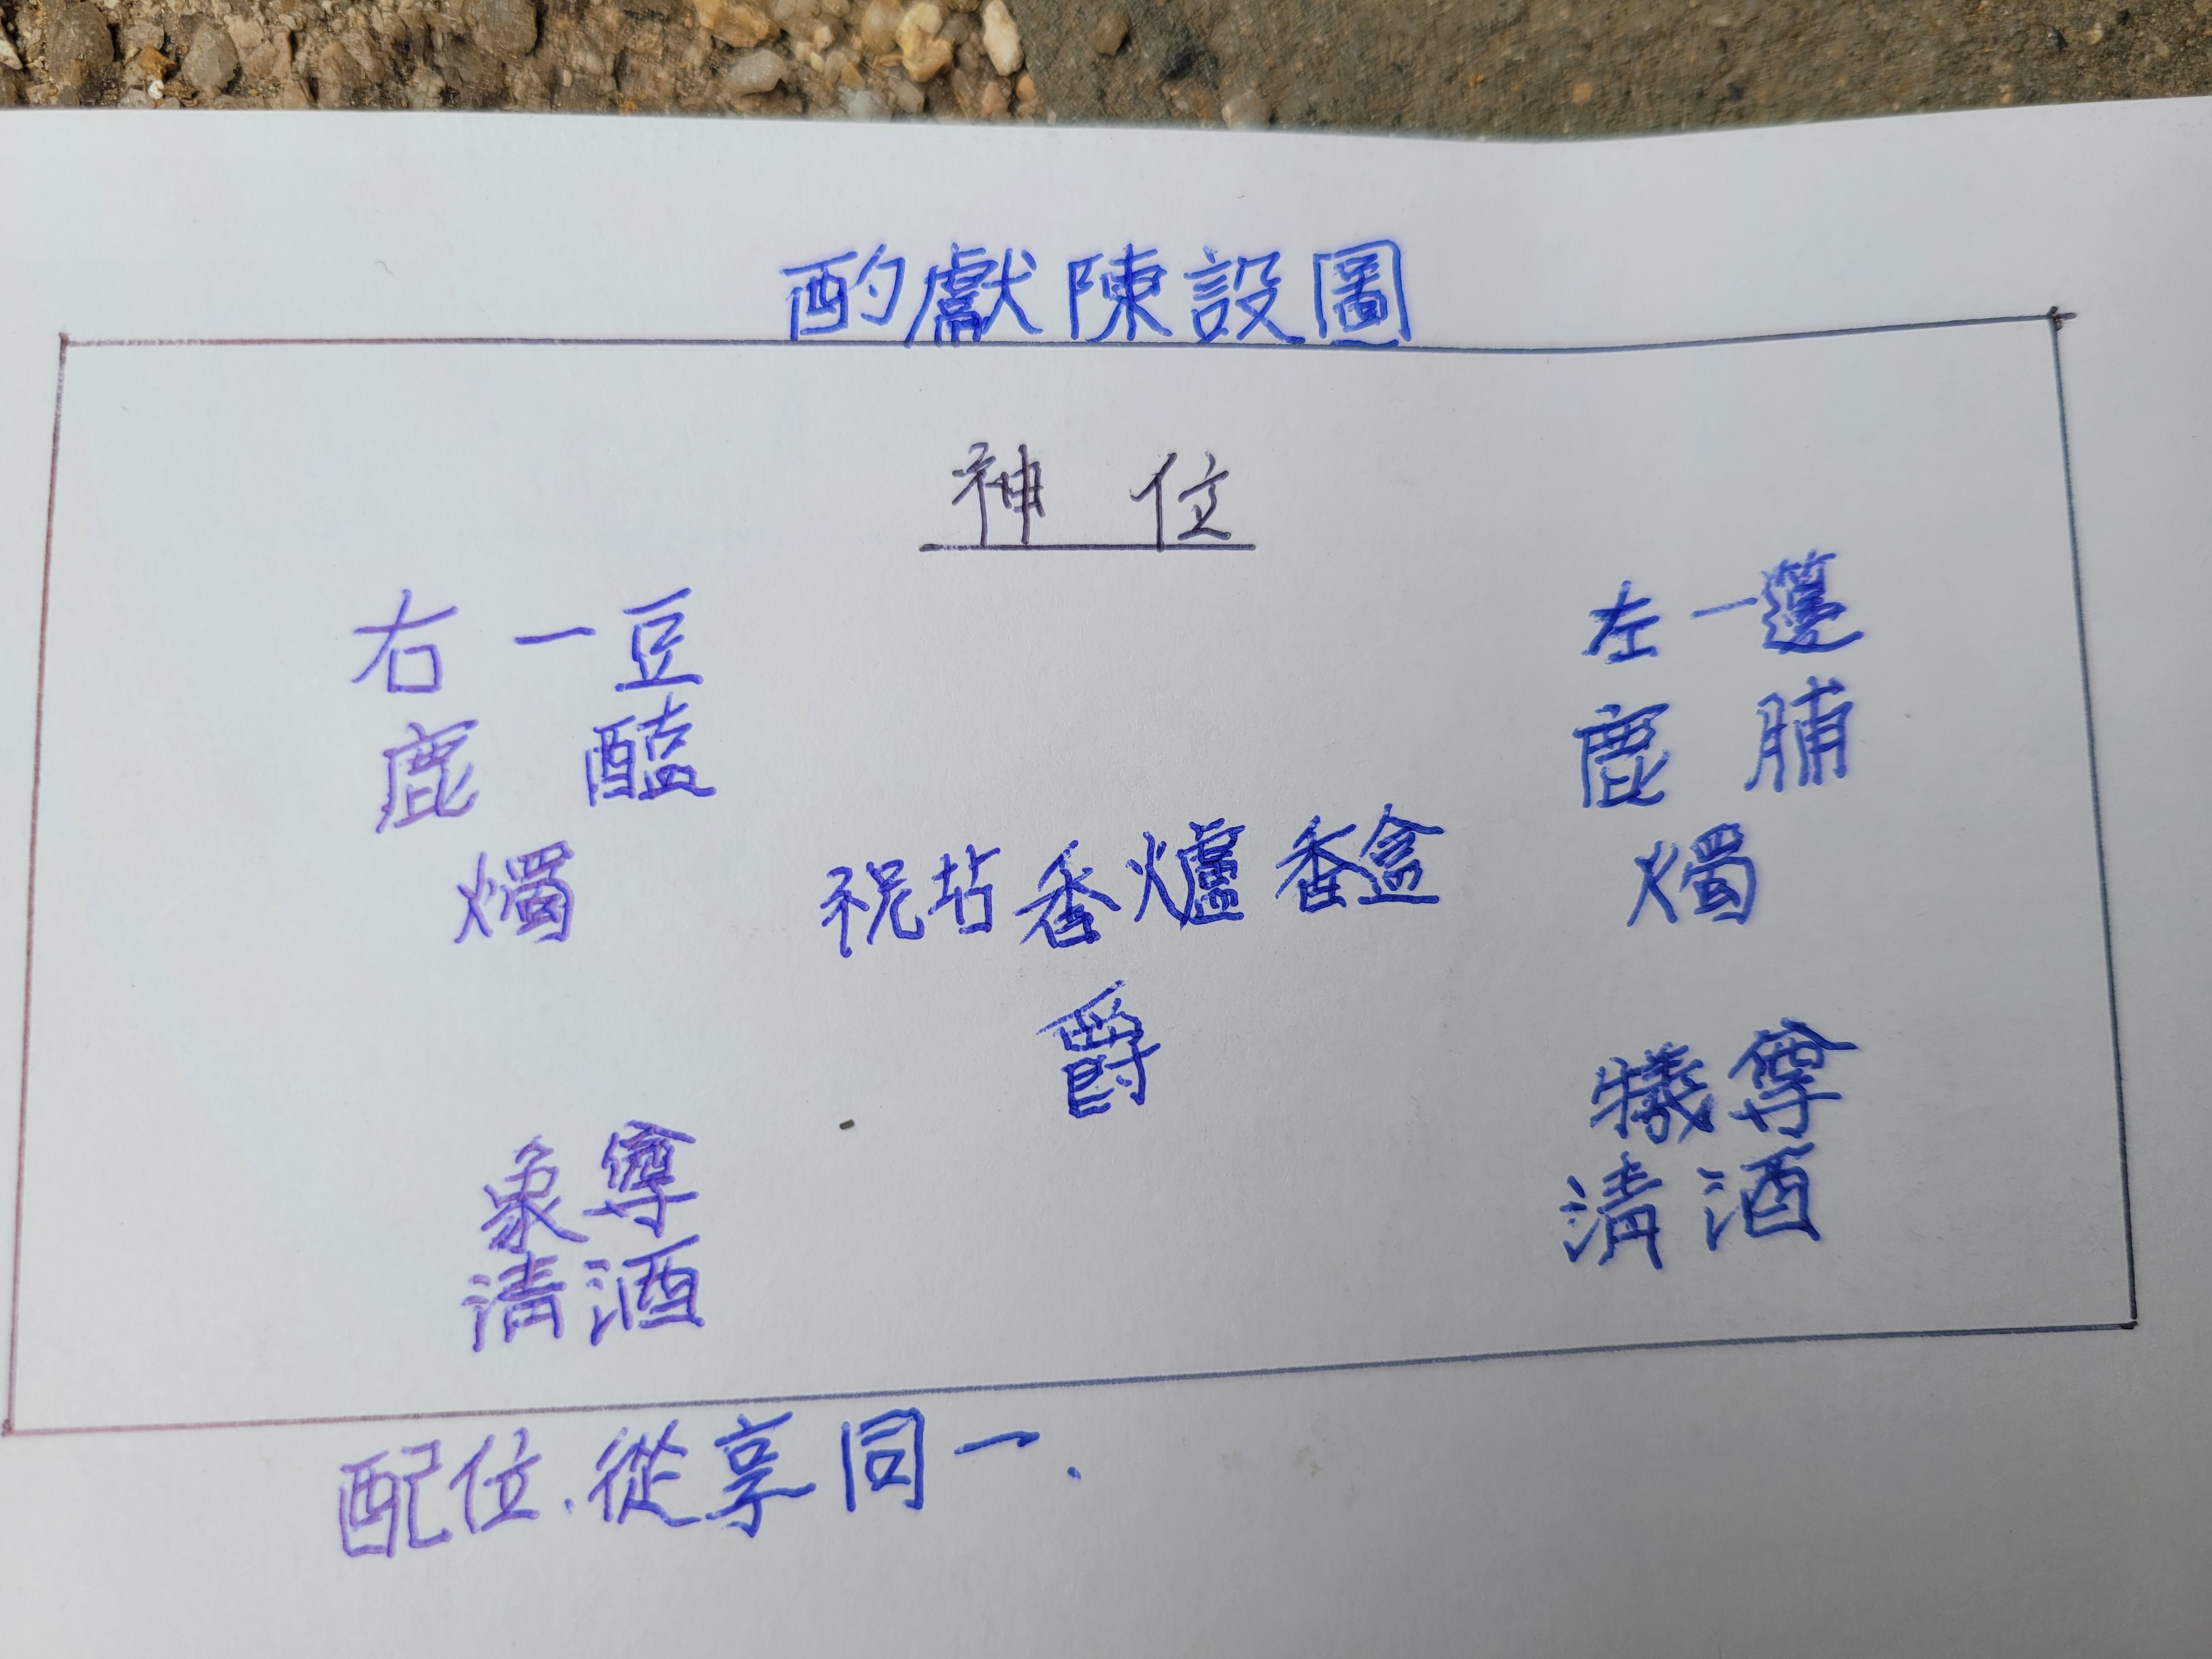 酌獻陳設圖
神位
右一豆
左一籩
鹿醢
鹿脯
燭
祝坫香爐香盒
燭
爵
象尊
犧尊
清酒
清酒
配位.從享同一.